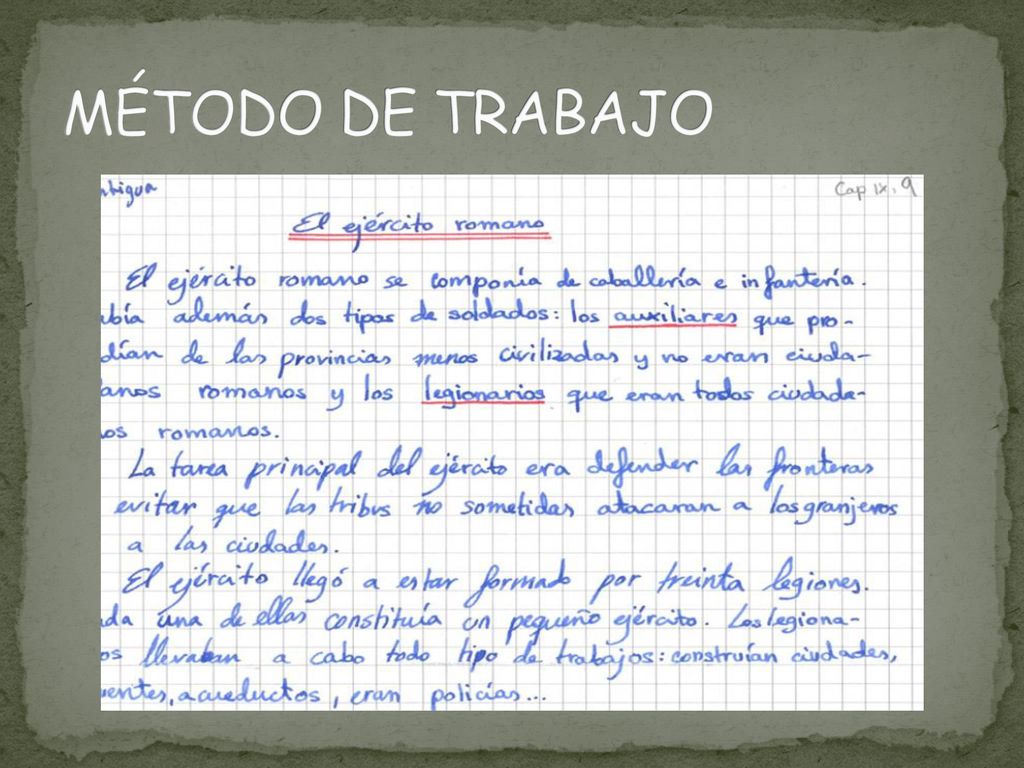 MÉTODO DE TRABAJO
ntigua
Cap IX, 9
El ejército romano
El ejército romano se componía de caballería e infantería.
bía además dos tipos de soldados: los auxiliares que pro-
dían de las provincias menos civilizadas y no eran ciuda-
anos romanos y los legionarios que eran todos ciudada-
os romanos.
La tarea principal del ejército era defender las fronteras
evitar que las tribus no sometidas atacaran a los granjeros
a las ciudades.
El ejército llegó a estar formado por treinta legiones.
da una de ellas constituía un pequeño ejército. Los legiona-
os llevaban a cabo todo tipo de trabajos: construían ciudades,
entes, acueductos, eran policías...